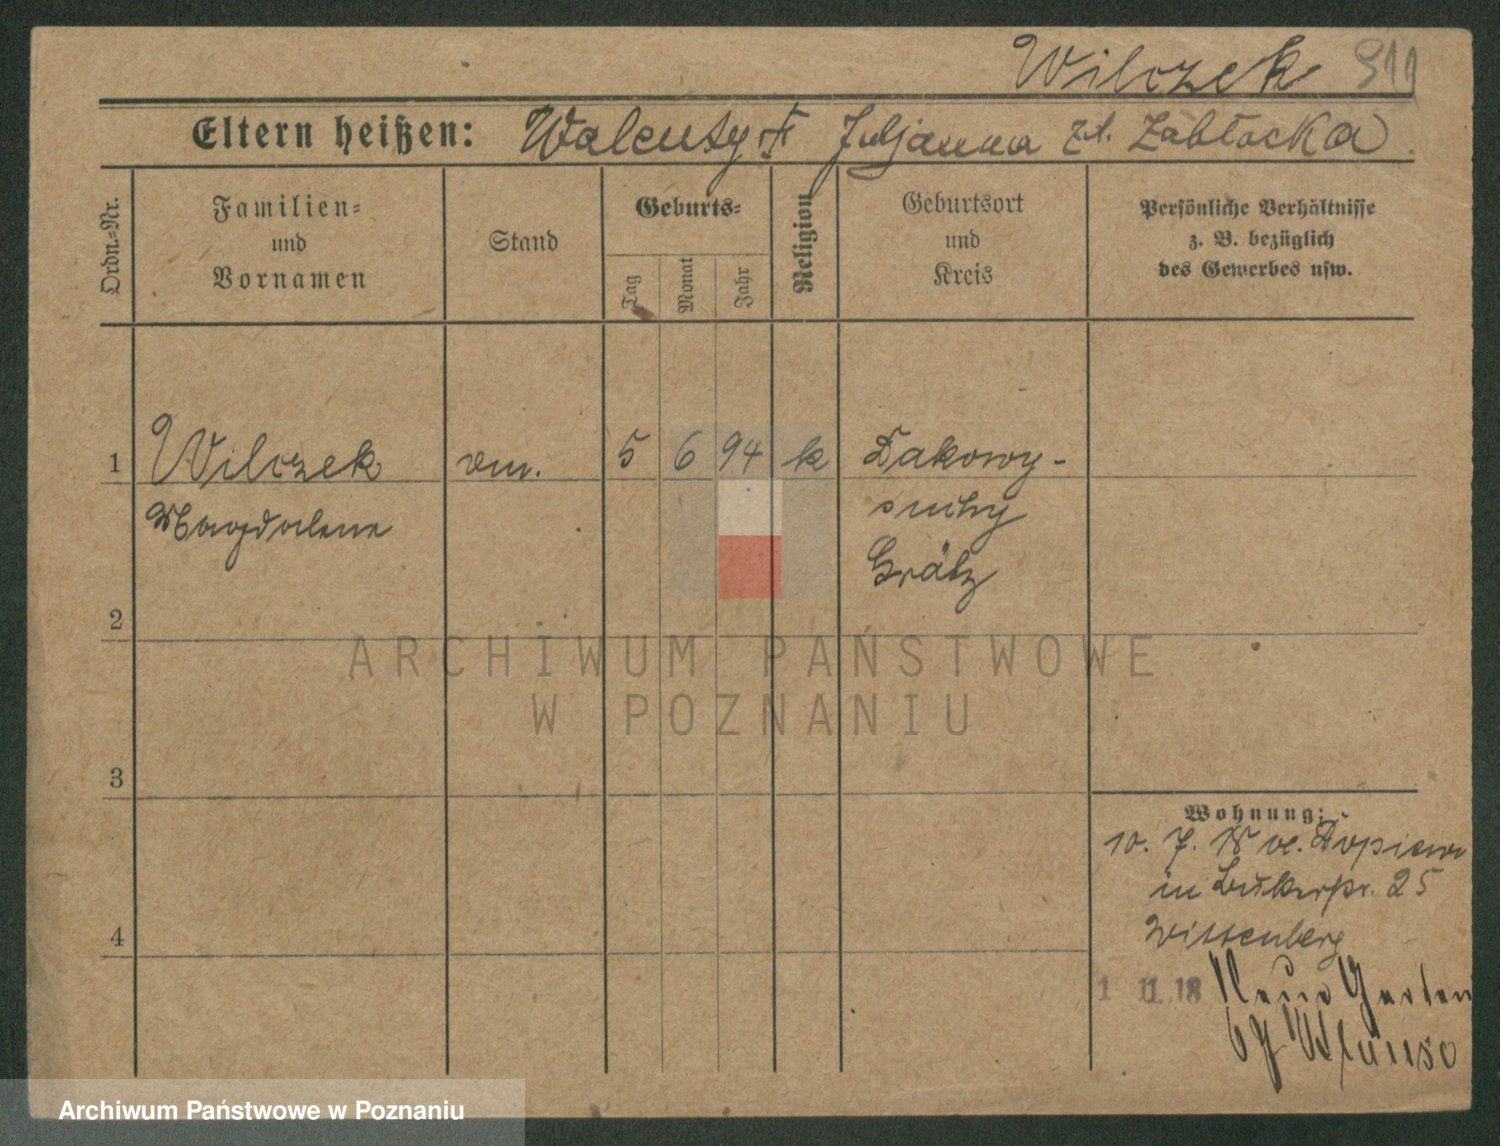 Wilczek 911
Eltern heißen: Walenty † Juljanna zd. Zabłocka
Ordn.=Nr.
Familien=
und
Vornamen
Stand
Geburts=
Tag
Monat
Jahr
Religion
Geburtsort
und
Kreis
Persönliche Verhältnisse
z. B. bezüglich
des Gewerbes usw.
1 Wilczek 5 6 94 k Dakowy-
Magdalene suchy
Grätz
2
3
4
Wohnung:
10. 7. Dopiewo
in 25
Wittenberg
1 11. 18 Neue Garten
67
ARCHIWUM PAŃSTWOWE
W POZNANIU
Archiwum Państwowe w Poznaniu